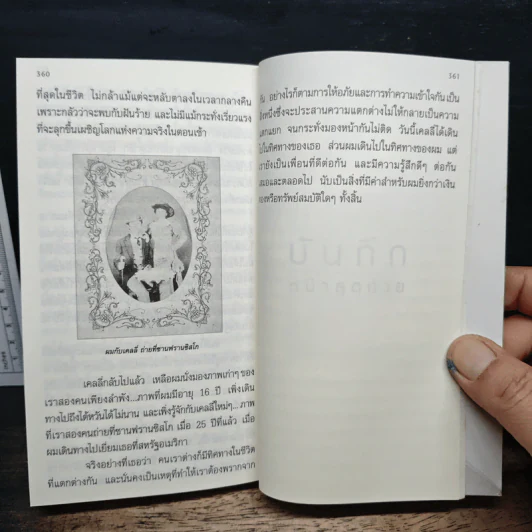 360
ที่สุดในชีวิต ไม่กล้าแม้แต่จะหลับตาลงในเวลากลางคืน
เพราะกลัวว่าจะพบกับฝันร้าย และไม่มีแม้กระทั่งเรี่ยวแรง
ที่จะลุกขึ้นเผชิญโลกแห่งความจริงในตอนเช้า
ผมกับเคลลี่ ถ่ายที่ซานฟรานซิสโก
เคลลี่กลับไปแล้ว เหลือผมนั่งมองภาพเก่าๆ ของ
เราสองคนเพียงลำพัง...ภาพที่ผมมีอายุ 16 ปี เพิ่งเดิน
ทางไปถึงไต้หวันได้ไม่นาน และเพิ่งรู้จักกับเคลลี่ใหม่ๆ...ภาพ
ที่เราสองคนถ่ายที่ซานฟรานซิสโก เมื่อ 25 ปีที่แล้ว เมื่อ
ผมเดินทางไปเยี่ยมเธอที่สหรัฐอเมริกา
จริงอย่างที่เธอว่า คนเราต่างก็มีทิศทางในชีวิต
ที่แตกต่างกัน และนั่นคงเป็นเหตุที่ทำให้เราต้องพรากจาก
361
กัน อย่างไรก็ตามการให้อภัยและการทำความเข้าใจกัน เป็น
สิ่งหนึ่งซึ่งจะประสานความแตกต่างไม่ให้กลายเป็นความ
แตกแยก จนกระทั่งมองหน้ากันไม่ติด วันนี้เคลลี่ได้เดิน
ไปในทิศทางของเธอ ส่วนผมเดินไปในทิศทางของผม แต่
เรายังเป็นเพื่อนที่ดีต่อกัน และมีความรู้สึกดีๆ ต่อกัน
เสมอและตลอดไป นับเป็นสิ่งที่มีค่าสำหรับผมยิ่งกว่าเงิน
ทองหรือทรัพย์สมบัติใดๆ ทั้งสิ้น